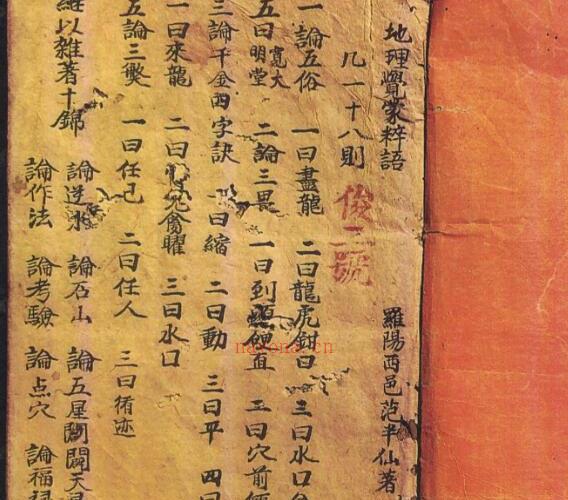 地理覺蒙粹語
羅陽西邑范半仙著
凡一十八則
俊二號
一論五俗 一曰盡龍 二曰龍虎鉗口 三曰水口
五曰明堂寬大 二論三畏 一曰到頭硬直 二曰穴前
三論千金四字訣 一曰縮 二曰動 三曰平 四曰
一曰來龍 二曰 禽曜 三曰水口
五論三獘 一曰任己 二曰任人 三曰循迹
以雜著十錦 論逆水 論石山 論五星 闢天
論作法 論考驗 論点穴 論福
nayona.cn